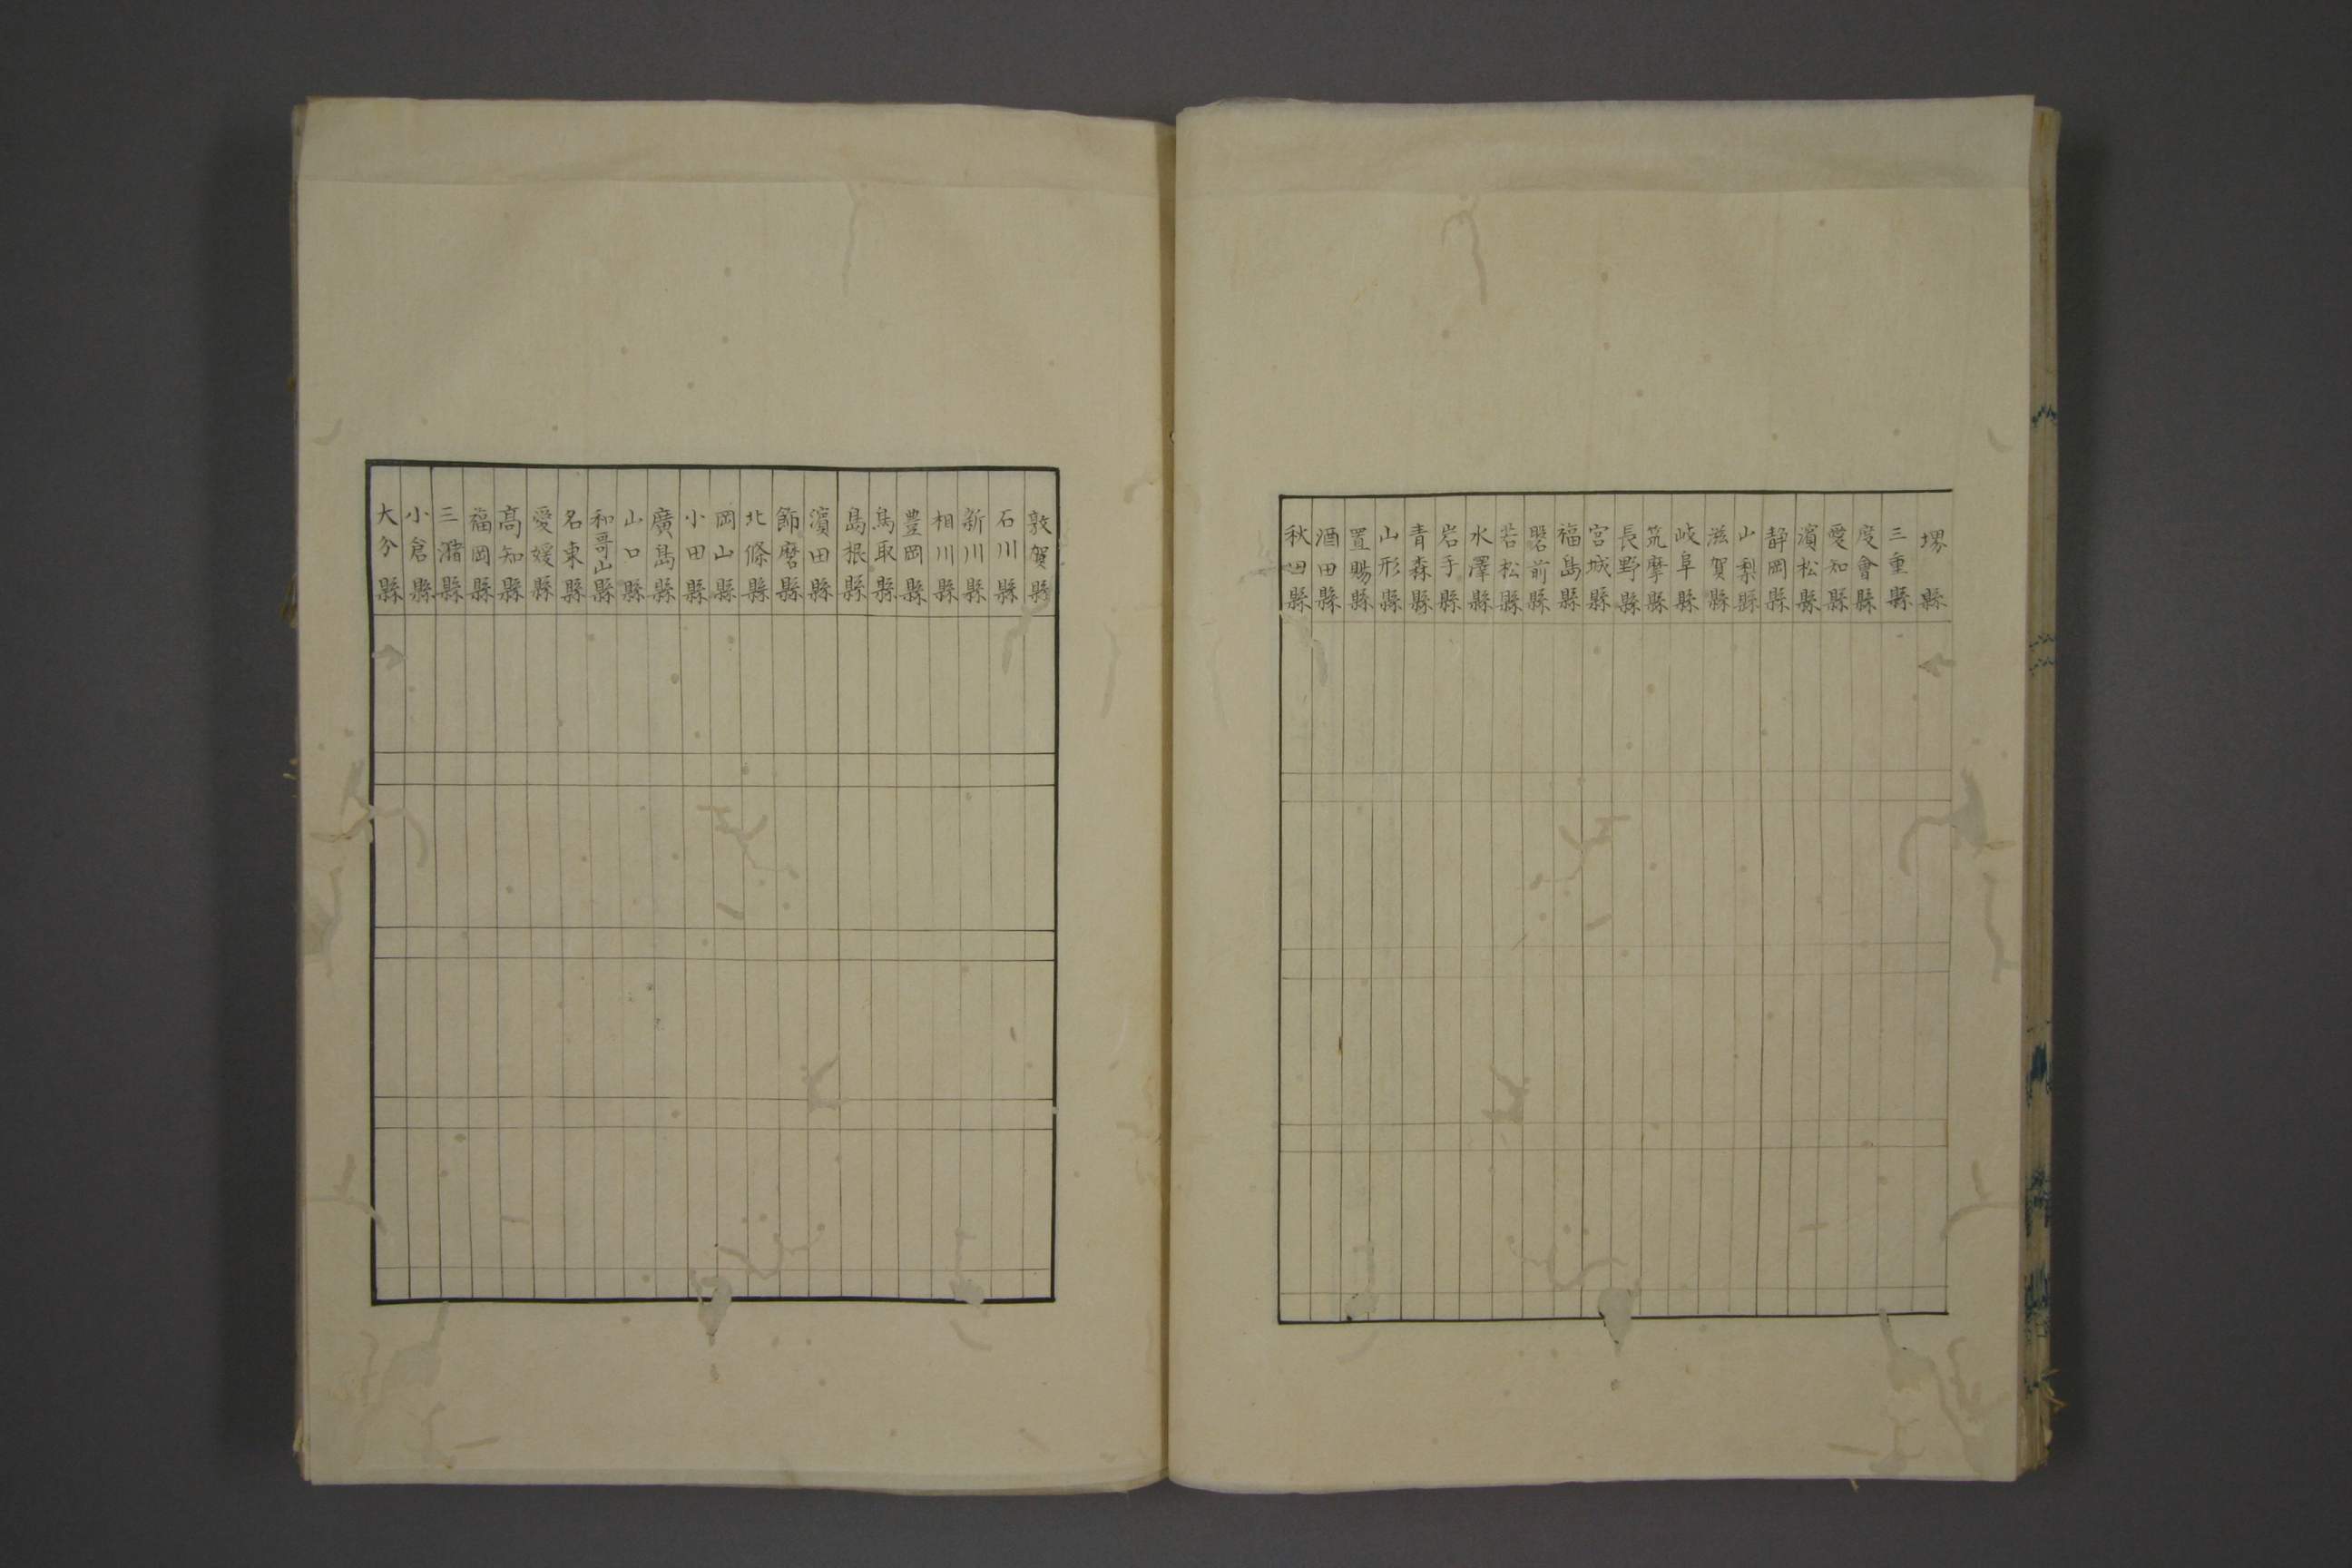 堺縣
三重縣
度會縣
愛知縣
濱松縣
静岡縣
山梨縣
滋賀縣
岐阜縣
筑摩縣
長野縣
宮城縣
福島縣
磐前縣
若松縣
水澤縣
岩手縣
青森縣
山形縣
置賜縣
酒田縣
秋田縣
敦賀縣
石川縣
新川縣
相川縣
豊岡縣
鳥取縣
島根縣
濱田縣
飾磨縣
北條縣
岡山縣
小田縣
廣島縣
山口縣
和哥山縣
名東縣
愛媛縣
髙知縣
福岡縣
三潴縣
小倉縣
大分縣